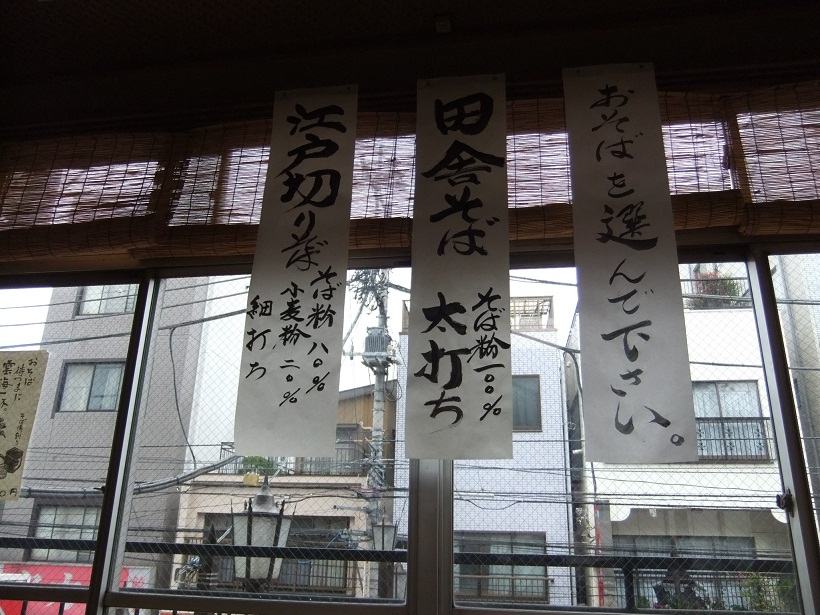 おそばを選んで下さい。
田舎そば
そば粉一〇〇%
太打ち
江戸切りそば
そば粉 八〇%
小麦粉 二〇%
細打ち
おそば